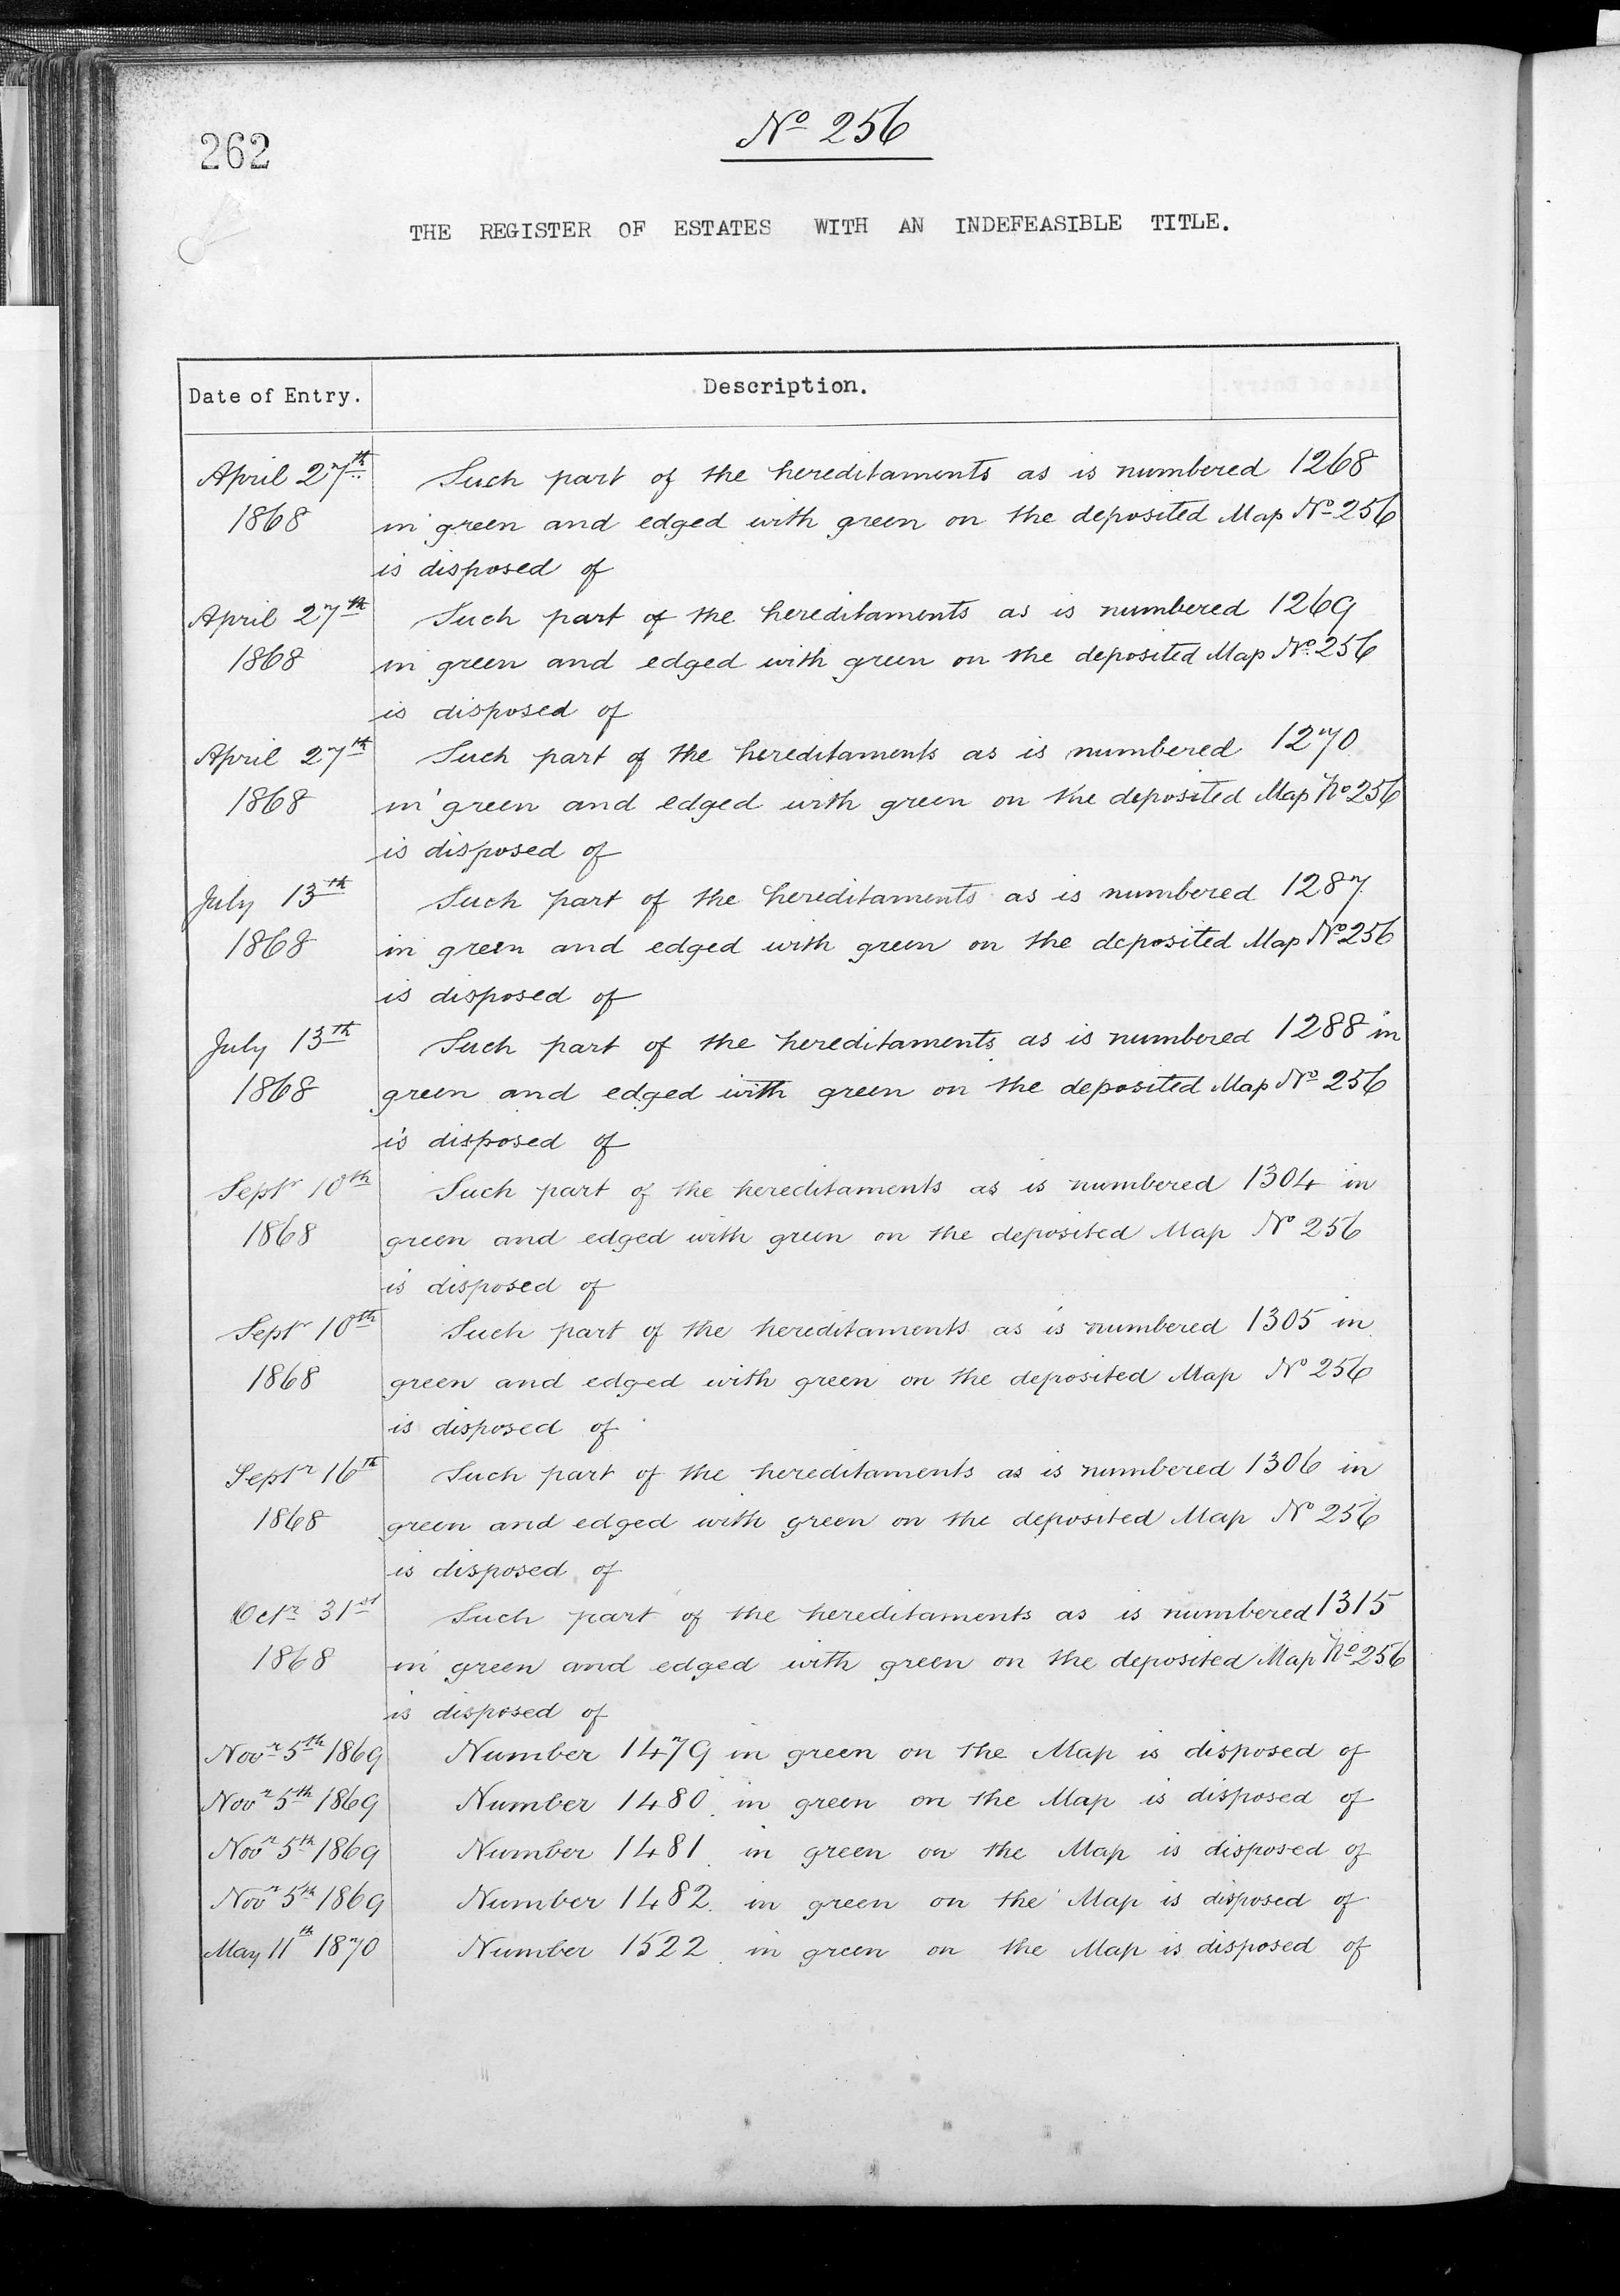 262
No 256
THE REGISTER OF ESTATES WITH AN INDEFEASIBLE TITLE.
Date of Entry. Description.
April 27th Such part of the hereditaments as is numbered 1268
1868 in green and edged with green on the deposited Map No 256
is disposed of
April 27th Such part of the hereditaments as is numbered 1269
1868 in green and edged with green on the deposited Map No 256
is disposed of
April 27th Such part of the hereditaments as is numbered 1270
1868 in green and edged with green on the deposited Map No 256
is disposed of
July 13th Such part of the hereditaments as is numbered 1287
1868 in green and edged with green on the deposited Map No 256
is disposed of
July 13th Such part of the hereditaments as is numbered 1288 in
1868 green and edged with green on the deposited Map No 256
is disposed of
Septr 10th Such part of the hereditaments as is numbered 1304 in
1868 green and edged with green on the deposited Map No 256
is disposed of
Septr 10th Such part of the hereditaments as is numbered 1305 in
1868 green and edged with green on the deposited Map No 256
is disposed of
Septr 16th Such part of the hereditaments as is numbered 1306 in
1868 green and edged with green on the deposited Map No 256
is disposed of
Octr 31st Such part of the hereditaments as is numbered 1315
1868 in green and edged with green on the deposited Map No 256
is disposed of
Novr 5th 1869 Number 1479 in green on the Map is disposed of
Novr 5th 1869 Number 1480 in green on the Map is disposed of
Novr 5th 1869 Number 1481 in green on the Map is disposed of
Novr 5th 1869 Number 1482 in green on the Map is disposed of
May 11th 1870 Number 1522 in green on the Map is disposed of